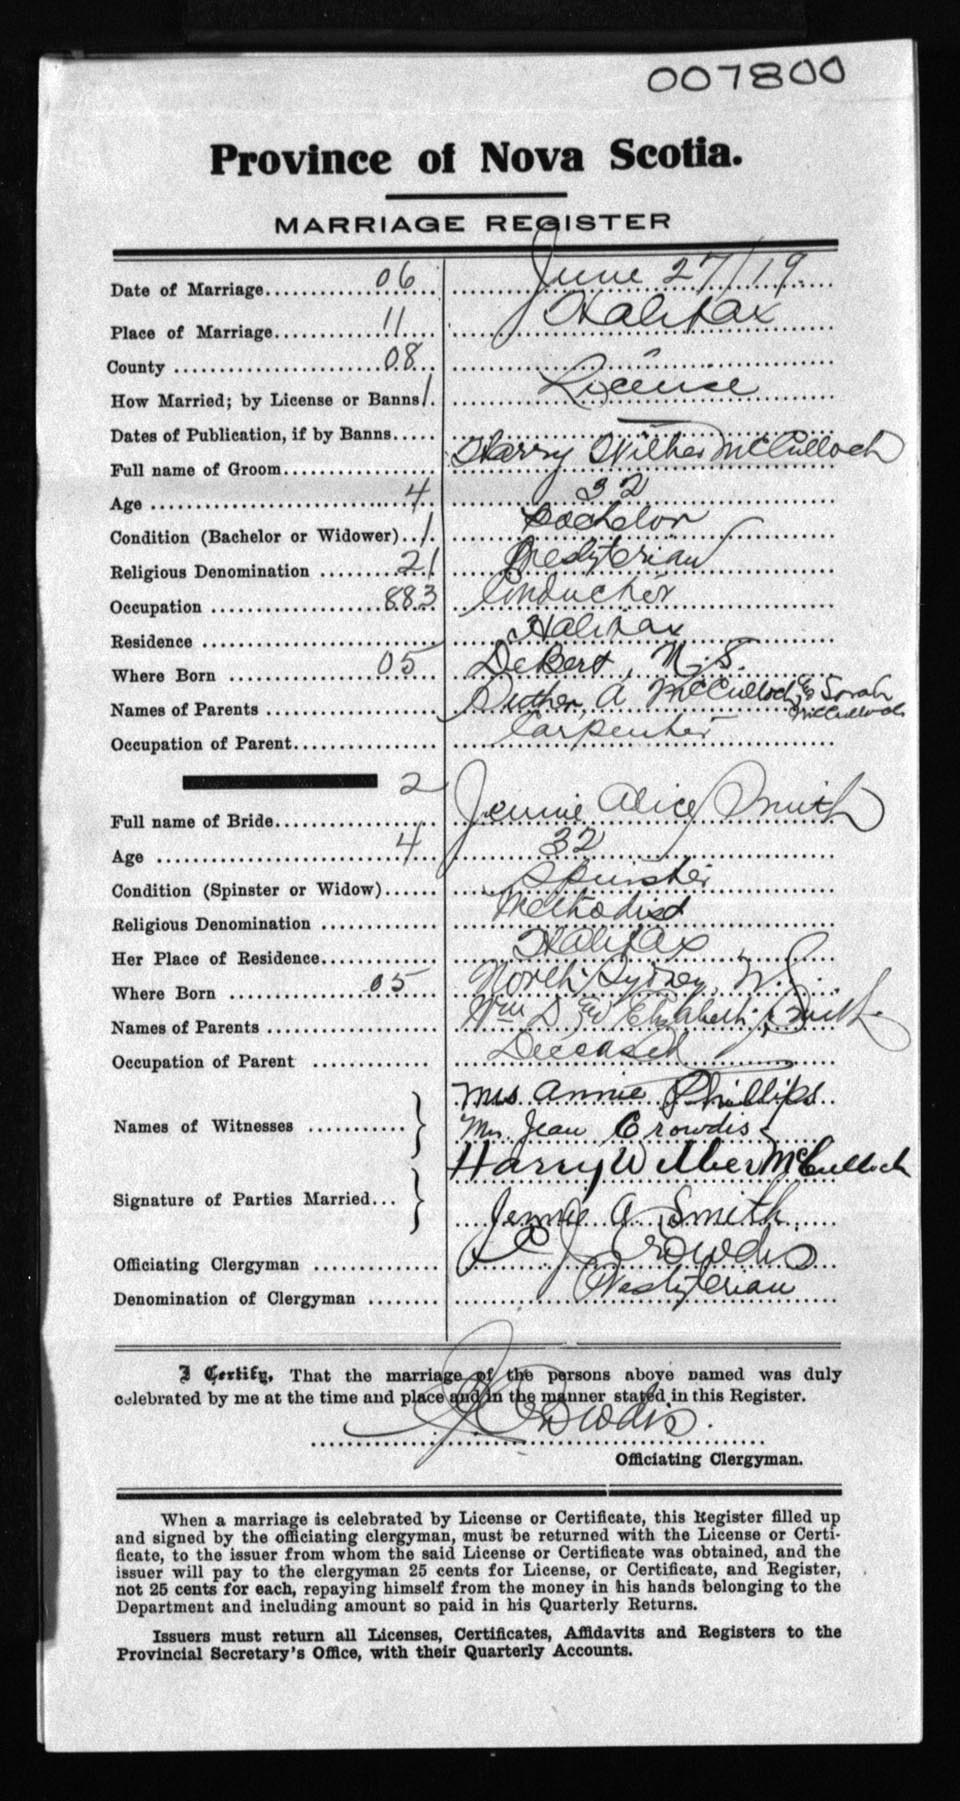 007800
Province of Nova Scotia.
MARRIAGE REGISTER
Date of Marriage 06 June 27/19
Place of Marriage 11 Halifax
County 08 "
How Married; by License or Banns 1 License
Dates of Publication, if by Banns —
Full name of Groom Harry Wilber McCulloch
Age 4 32
Condition (Bachelor or Widower) 1 Bachelor
Religious Denomination 21 Presbyterian
Occupation 883 Conductor
Residence Halifax
Where Born 05 Debert, N.S.
Names of Parents A McCulloch & Sarah McCulloch
Occupation of Parent Carpenter
2
Full name of Bride Jennie Alice Smith
Age 4 32
Condition (Spinster or Widow) Spinster
Religious Denomination Methodist
Her Place of Residence Halifax
Where Born 05 North Sydney, N.S.
Names of Parents Wm D and Elizabeth Smith
Occupation of Parent Deceased
Names of Witnesses Mrs Annie Phillips
Mrs Jean Crowdis
Signature of Parties Married Harry Wilber McCulloch
Jennie A. Smith
Officiating Clergyman Crowdis
Denomination of Clergyman Presbyterian
I Certify, That the marriage of the persons above named was duly
celebrated by me at the time and place and in the manner stated in this Register.
Crowdis.
Officiating Clergyman.
When a marriage is celebrated by License or Certificate, this Register filled up
and signed by the officiating clergyman, must be returned with the License or Certi-
ficate, to the issuer from whom the said License or Certificate was obtained, and the
issuer will pay to the clergyman 25 cents for License, or Certificate, and Register,
not 25 cents for each, repaying himself from the money in his hands belonging to the
Department and including amount so paid in his Quarterly Returns.
Issuers must return all Licenses, Certificates, Affidavits and Registers to the
Provincial Secretary's Office, with their Quarterly Accounts.